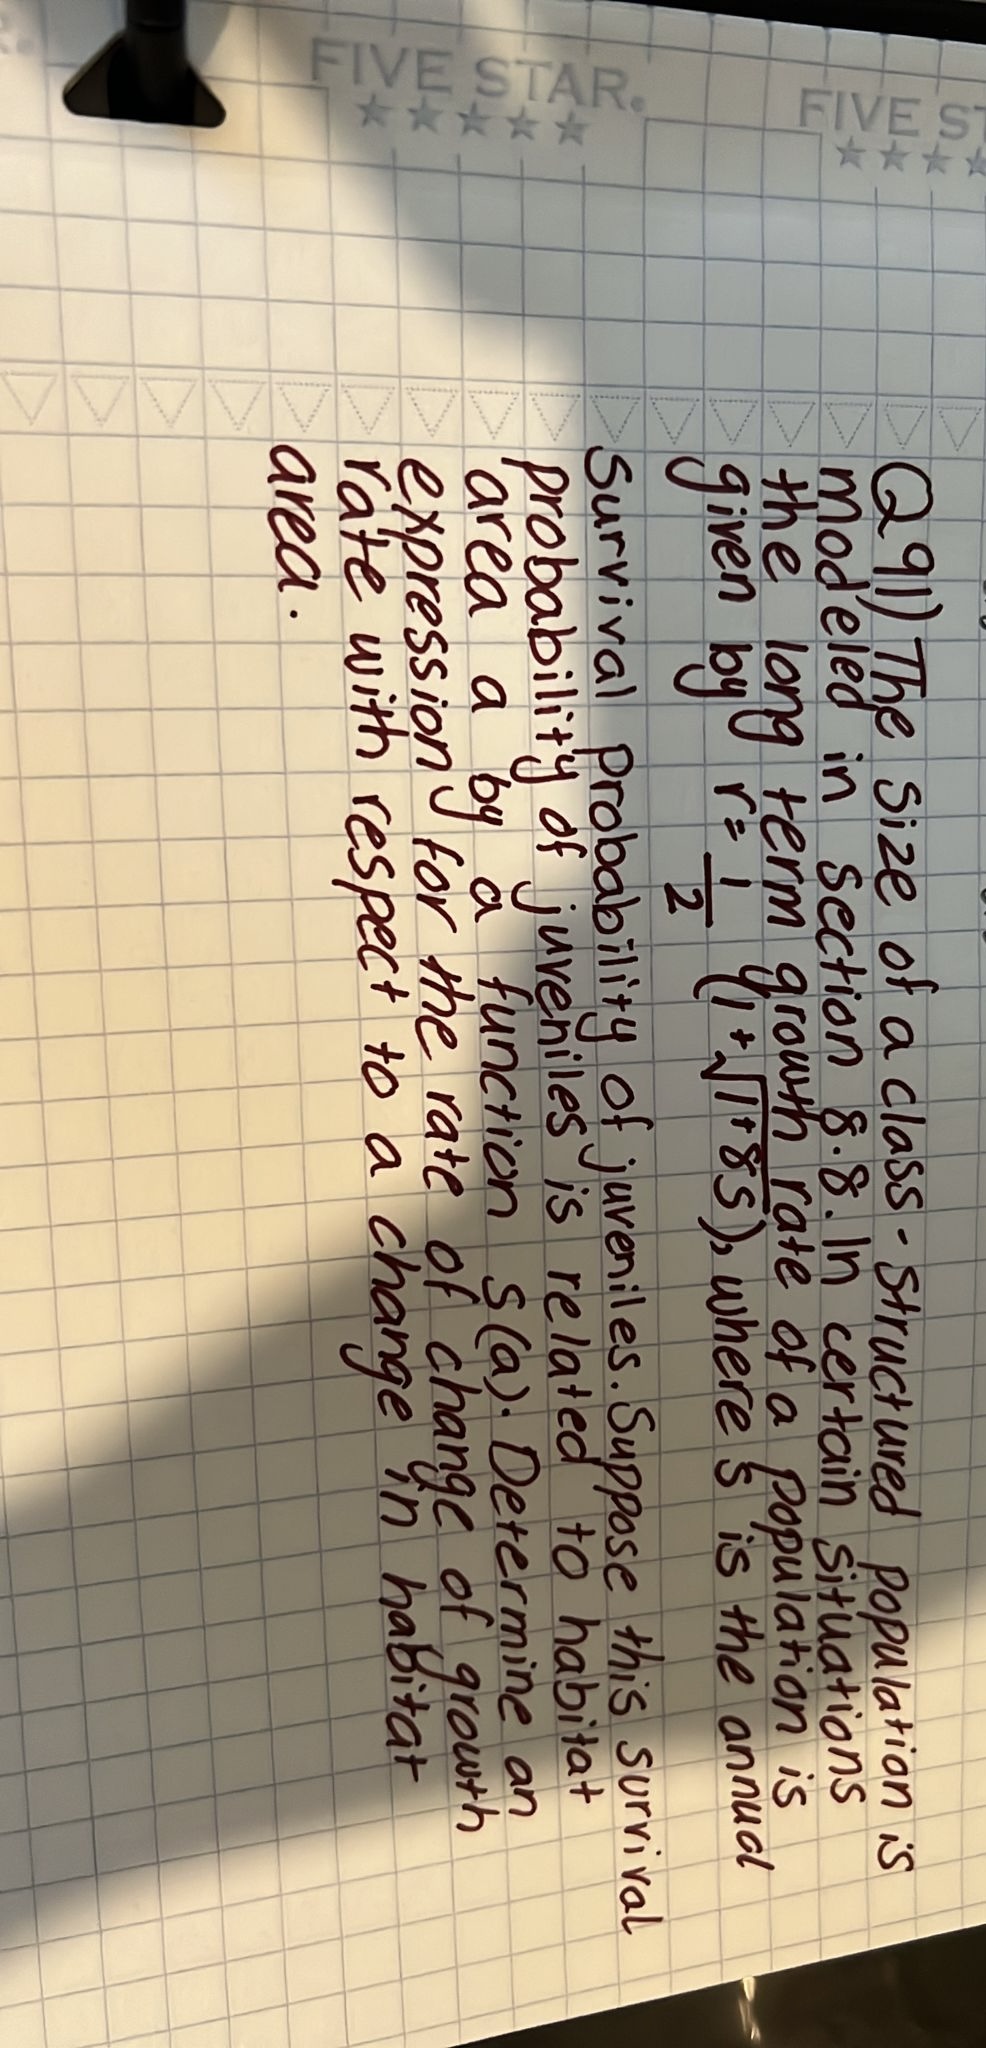 FIVE STAR.
FIVE ST
Q91) The size of a class-structured population is
modeled in section 8.8. In certain situations
the long term growth rate of a population is
given by r = 1/2 (1 + √1+8s), where s is the annual
survival probability of juveniles. Suppose this survival
probability of juveniles is related to habitat
area a by a function s(a). Determine an
expression for the rate of change of growth
rate with respect to a change in habitat
area.